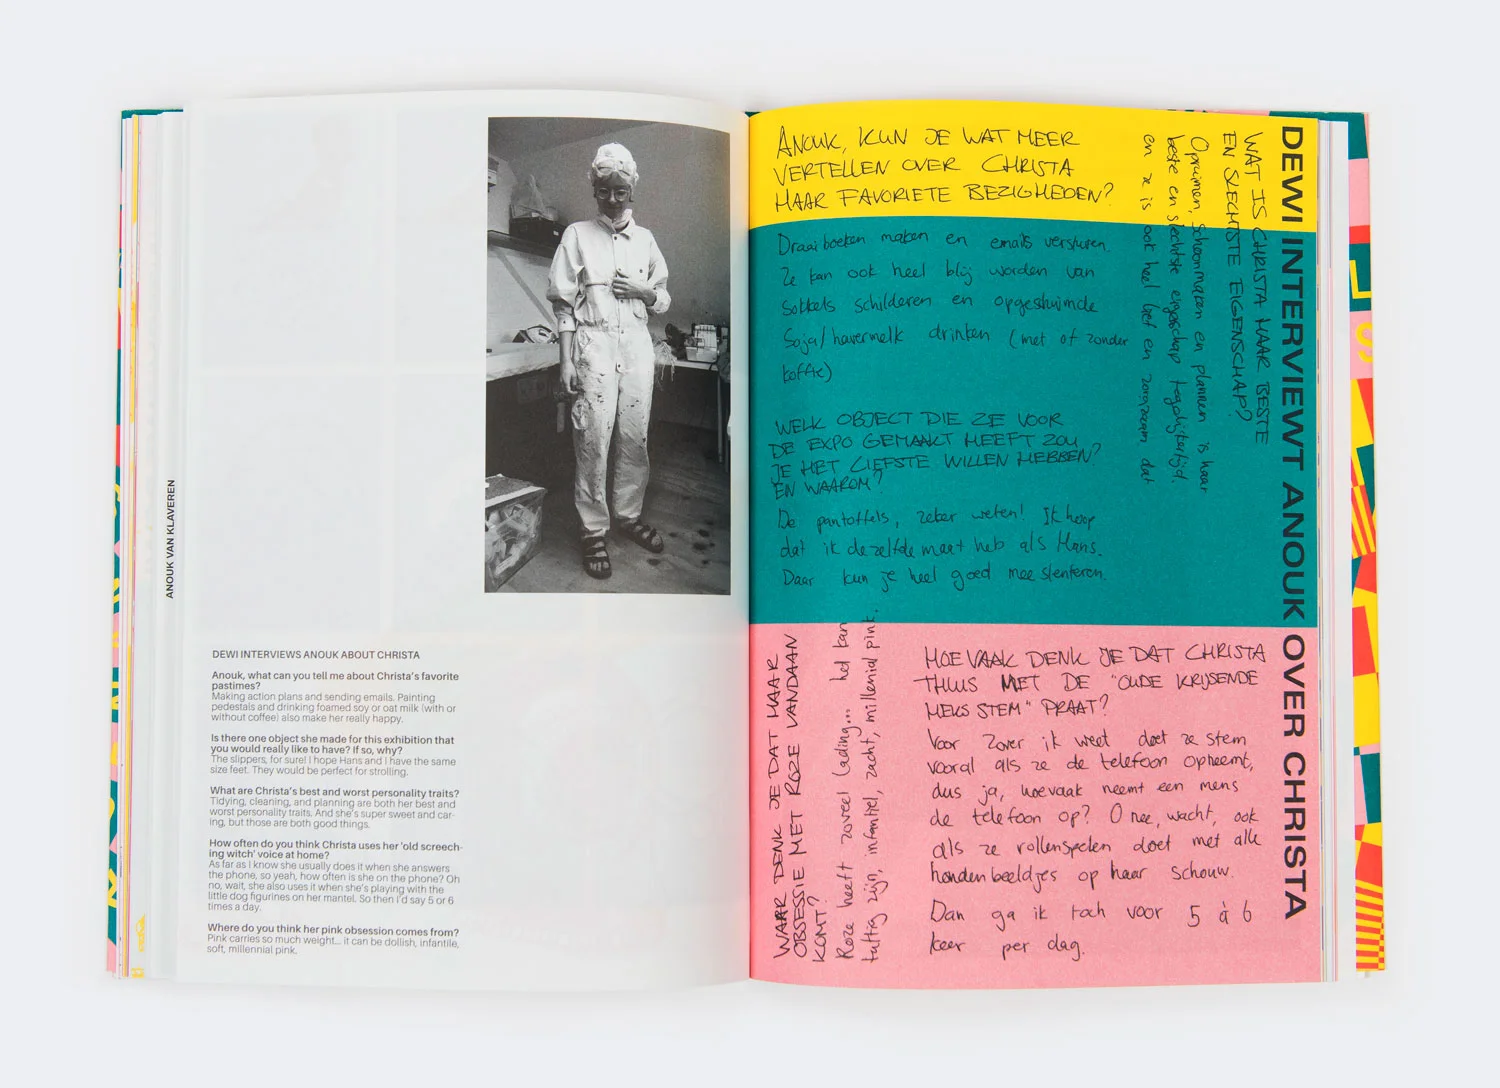 ANOUK VAN KLAVEREN
DEWI INTERVIEWS ANOUK ABOUT CHRISTA
Anouk, what can you tell me about Christa's favorite
pastimes?
Making action plans and sending emails. Painting
pedestals and drinking foamed soy or oat milk (with or
without coffee) also make her really happy.
Is there one object she made for this exhibition that
you would really like to have? If so, why?
The slippers, for sure! I hope Hans and I have the same
size feet. They would be perfect for strolling.
What are Christa's best and worst personality traits?
Tidying, cleaning, and planning are both her best and
worst personality traits. And she's super sweet and car-
ing, but those are both good things.
How often do you think Christa uses her 'old screech-
ing witch' voice at home?
As far as I know she usually does it when she answers
the phone, so yeah, how often is she on the phone? Oh
no, wait, she also uses it when she's playing with the
little dog figurines on her mantel. So then I'd say 5 or 6
times a day.
Where do you think her pink obsession comes from?
Pink carries so much weight... it can be dollish, infantile,
soft, millennial pink.
ANOUK, KUN JE WAT MEER
VERTELLEN OVER CHRISTA
HAAR FAVORIETE BEZIGHEDEN?
Draaiboeken maken en emails versturen.
Ze kan ook heel blij worden van
sokkels schilderen en opgeshuimde
Soja/havermelk drinken (met of zonder
koffie)
WELK OBJECT DIE ZE VOOR
DE EXPO GEMAAKT HEEFT ZOU
JE HET LIEFSTE WILLEN HEBBEN?
EN WAAROM?
De pantoffels, zeker weten! Ik hoop
dat ik dezelfde maat heb als Hans.
Daar kun je heel goed mee slenteren.
WAT IS CHRISTA HAAR BESTE
EN SLECHTSTE EIGENSCHAP?
Opruimen, schoonmaken en plannen is haar
beste en slechtste eigenschap tegelijkertijd.
en ze is ook heel lief en zorgzaam dat
DEWI INTERVIEWT ANOUK OVER CHRISTA
HOE VAAK DENK JE DAT CHRISTA
THUIS MET DE "OUDE KRIJSENDE
HEKS STEM" PRAAT?
Voor zover ik weet doet ze stem
vooral als ze de telefoon opneemt,
dus ja, hoevaak neemt een mens
de telefoon op? O nee, wacht, ook
als ze rollenspelen doet met alle
hondenbeeldjes op haar schouw.
Dan ga ik toch voor 5 à 6
keer per dag.
WAAR DENK JE DAT HAAR
OBSESSIE MET ROZE VANDAAN
KOMT?
Roze heeft zoveel lading... het kan
tuttig zijn, infantiel, zacht, millenial pink.